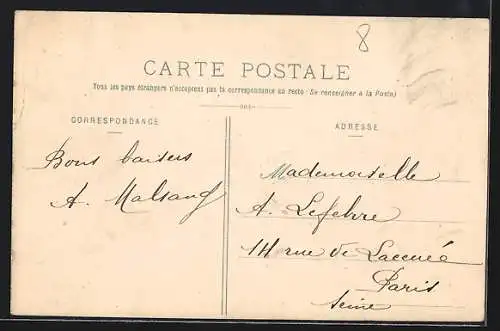 8
CARTE POSTALE
Tous les pays étrangers n'acceptent pas la correspondance au recto (Se renseigner à la Poste)
CORRESPONDANCE
Bons baisers
A.
ADRESSE
Mademoiselle
A. Lefebvre
14 rue de Lacuée
Paris
Seine